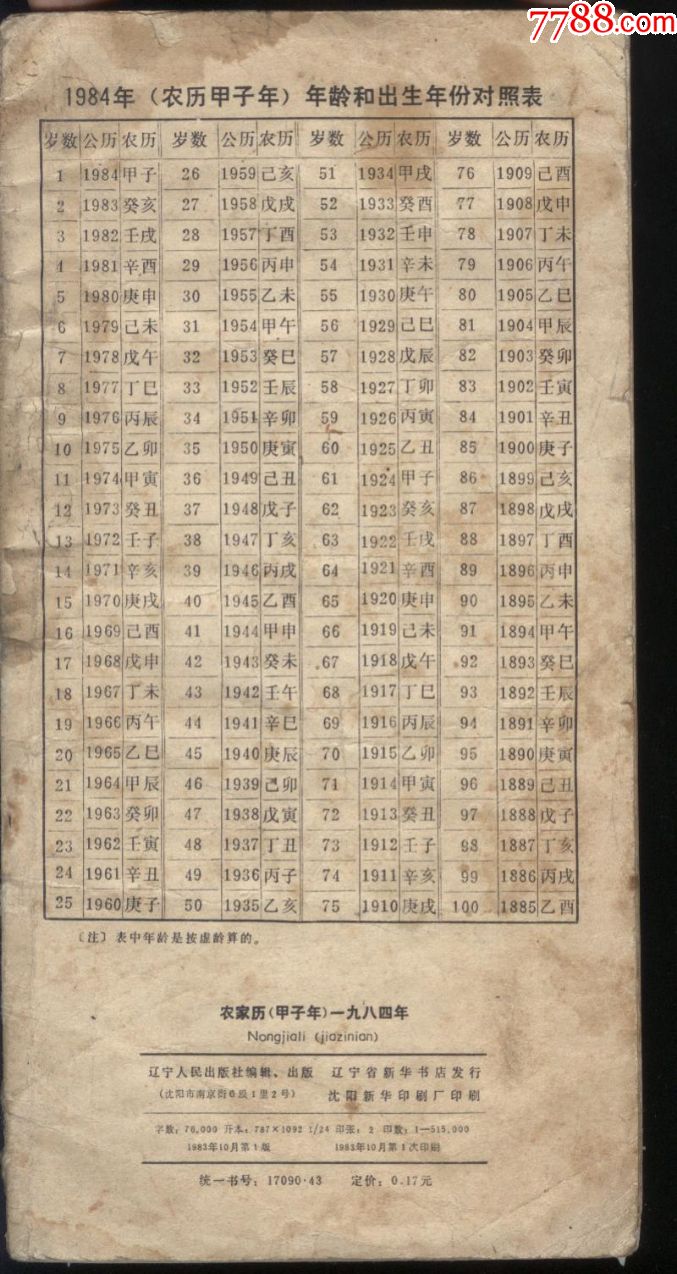 7788.com
1984年（农历甲子年）年龄和出生年份对照表
岁数 公历 农历 岁数 公历 农历 岁数 公历 农历 岁数 公历 农历
1 1984 甲子 26 1959 己亥 51 1934 甲戌 76 1909 己酉
2 1983 癸亥 27 1958 戊戌 52 1933 癸酉 77 1908 戊申
3 1982 壬戌 28 1957 丁酉 53 1932 壬申 78 1907 丁未
4 1981 辛酉 29 1956 丙申 54 1931 辛未 79 1906 丙午
5 1980 庚申 30 1955 乙未 55 1930 庚午 80 1905 乙巳
6 1979 己未 31 1954 甲午 56 1929 己巳 81 1904 甲辰
7 1978 戊午 32 1953 癸巳 57 1928 戊辰 82 1903 癸卯
8 1977 丁巳 33 1952 壬辰 58 1927 丁卯 83 1902 壬寅
9 1976 丙辰 34 1951 辛卯 59 1926 丙寅 84 1901 辛丑
10 1975 乙卯 35 1950 庚寅 60 1925 乙丑 85 1900 庚子
11 1974 甲寅 36 1949 己丑 61 1924 甲子 86 1899 己亥
12 1973 癸丑 37 1948 戊子 62 1923 癸亥 87 1898 戊戌
13 1972 壬子 38 1947 丁亥 63 1922 壬戌 88 1897 丁酉
14 1971 辛亥 39 1946 丙戌 64 1921 辛酉 89 1896 丙申
15 1970 庚戌 40 1945 乙酉 65 1920 庚申 90 1895 乙未
16 1969 己酉 41 1944 甲申 66 1919 己未 91 1894 甲午
17 1968 戊申 42 1943 癸未 67 1918 戊午 92 1893 癸巳
18 1967 丁未 43 1942 壬午 68 1917 丁巳 93 1892 壬辰
19 1966 丙午 44 1941 辛巳 69 1916 丙辰 94 1891 辛卯
20 1965 乙巳 45 1940 庚辰 70 1915 乙卯 95 1890 庚寅
21 1964 甲辰 46 1939 己卯 71 1914 甲寅 96 1889 己丑
22 1963 癸卯 47 1938 戊寅 72 1913 癸丑 97 1888 戊子
23 1962 壬寅 48 1937 丁丑 73 1912 壬子 98 1887 丁亥
24 1961 辛丑 49 1936 丙子 74 1911 辛亥 99 1886 丙戌
25 1960 庚子 50 1935 乙亥 75 1910 庚戌 100 1885 乙酉
〔注〕表中年龄是按虚龄算的。
农家历（甲子年）一九八四年
Nongjiali (jiazinian)
辽宁人民出版社编辑、出版 辽宁省新华书店发行
（沈阳市南京街6段1里2号） 沈阳新华印刷厂印刷
字数：76,000 开本：787×1092 1/24 印张：2 印数：1—515,000
1983年10月第1版 1983年10月第1次印刷
统一书号：17090·43 定价：0.17元